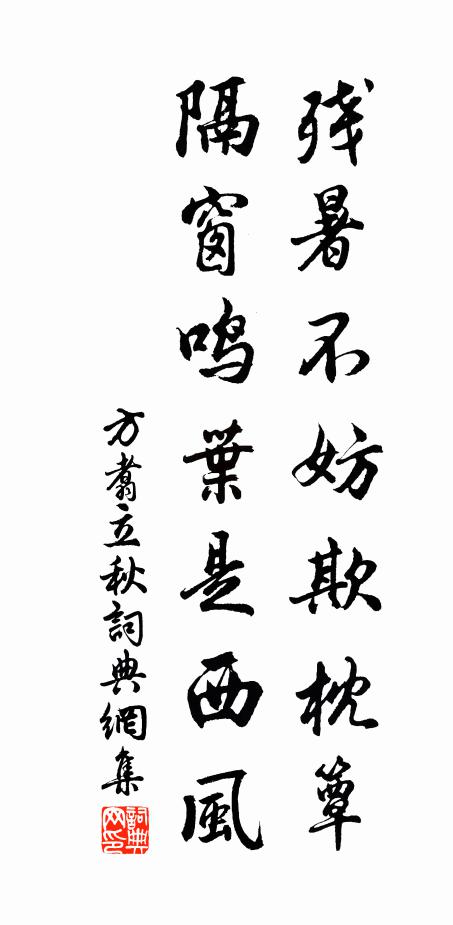 残暑不妨欺枕簟
隔窗鸣葉是西風
方翥立秋詞典網集
詞典网印